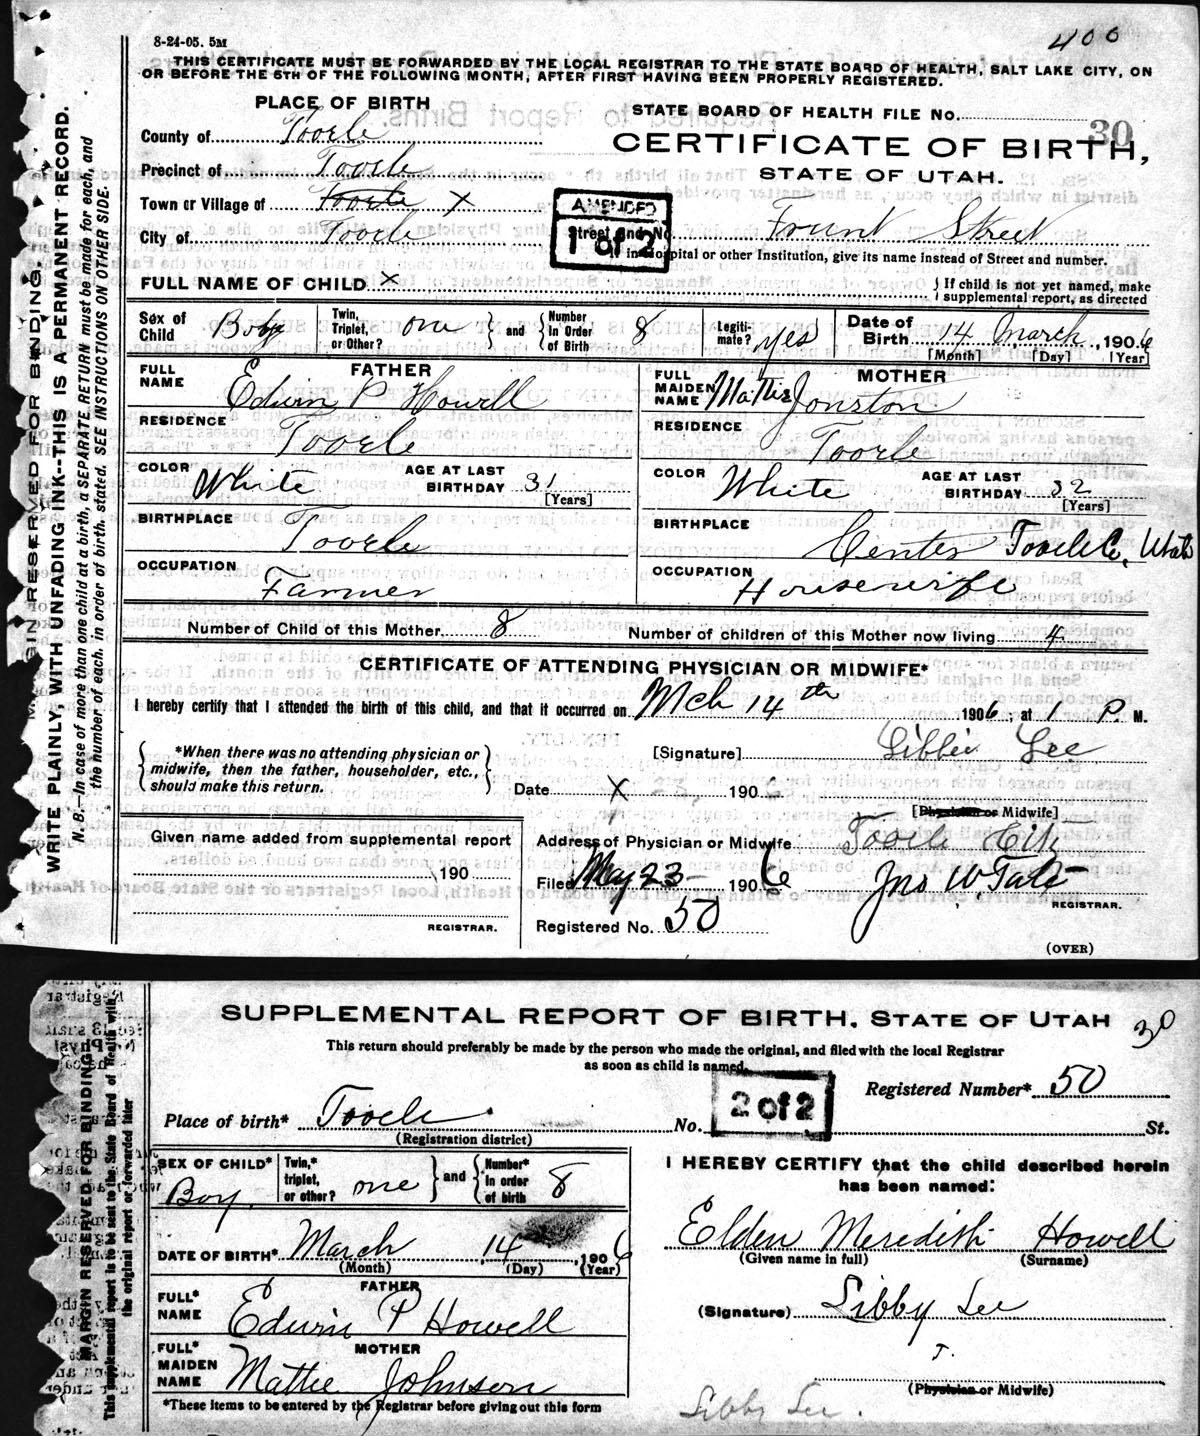 8-24-05. 5M
400
THIS CERTIFICATE MUST BE FORWARDED BY THE LOCAL REGISTRAR TO THE STATE BOARD OF HEALTH, SALT LAKE CITY, ON
OR BEFORE THE 5TH OF THE FOLLOWING MONTH, AFTER FIRST HAVING BEEN PROPERLY REGISTERED.
PLACE OF BIRTH
STATE BOARD OF HEALTH FILE No. 30
County of Tooele
CERTIFICATE OF BIRTH,
Precinct of Tooele
STATE OF UTAH.
Town or Village of Tooele X
AMENDED
1 of 2
City of Tooele
Street and No. Frunt Street
If in Hospital or other Institution, give its name instead of Street and number.
FULL NAME OF CHILD X
If child is not yet named, make
supplemental report, as directed
Sex of Child Boy
Twin, Triplet, or Other? one and Number In Order of Birth 8
Legiti-mate? yes
Date of Birth 14 March, 1906
[Month] [Day] [Year]
FATHER
FULL NAME Edwin P Howell
MOTHER
FULL MAIDEN NAME Mattie Jonston
RESIDENCE Tooele
RESIDENCE Tooele
COLOR White AGE AT LAST BIRTHDAY 31 [Years]
COLOR White AGE AT LAST BIRTHDAY 32 [Years]
BIRTHPLACE Tooele
BIRTHPLACE Center Tooele Co, Utah
OCCUPATION Farmer
OCCUPATION Housewife
Number of Child of this Mother 8
Number of children of this Mother now living 4
CERTIFICATE OF ATTENDING PHYSICIAN OR MIDWIFE*
I hereby certify that I attended the birth of this child, and that it occurred on Mch 14th 1906, at 1 P. M.
*When there was no attending physician or
midwife, then the father, householder, etc.,
should make this return.
[Signature] Libbie Lee
Date X 23, 1906
[Physician or Midwife]
Given name added from supplemental report
190
REGISTRAR.
Address of Physician or Midwife Tooele City
Filed May 23 - 1906 Jno W. Tate
REGISTRAR.
Registered No. 50
(OVER)
MARGIN RESERVED FOR BINDING.
WRITE PLAINLY, WITH UNFADING INK--THIS IS A PERMANENT RECORD.
N. B.--In case of more than one child at a birth, a SEPARATE RETURN must be made for each, and
the number of each, in order of birth, stated. SEE INSTRUCTIONS ON OTHER SIDE.
SUPPLEMENTAL REPORT OF BIRTH. STATE OF UTAH 30
This return should preferably be made by the person who made the original, and filed with the local Registrar
as soon as child is named.
2 of 2
Registered Number* 50
Place of birth* Tooele No. St.
(Registration district)
SEX OF CHILD* Boy
Twin,* triplet, or other? one and Number* in order of birth 8
I HEREBY CERTIFY that the child described herein
has been named:
Elden Meredith Howell
(Given name in full) (Surname)
DATE OF BIRTH* March 14, 1906
(Month) (Day) (Year)
FATHER
FULL* NAME Edwin P Howell
(Signature) Libby Lee
MOTHER
FULL* MAIDEN NAME Mattie Johnson
(Physician or Midwife)
*These items to be entered by the Registrar before giving out this form
Libby Lee.
MARGIN RESERVED FOR BINDING.
This supplemental report is to be sent to the State Board of Health with
the original report or forwarded later